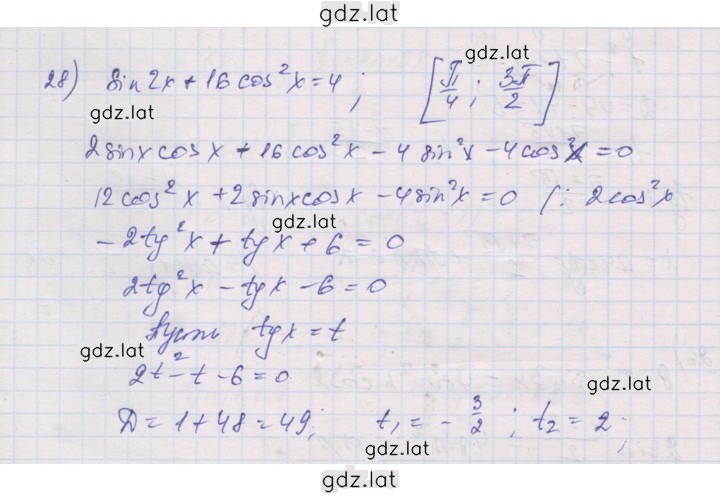 gdz.lat
28) sin2x + 16cos²x = 4 ; [π/4 ; 3π/2]
gdz.lat
gdz.lat
2sinxcosx + 16cos²x - 4sin²x - 4cos²x = 0
12cos²x + 2sinxcosx - 4sin²x = 0 /: 2cos²x
gdz.lat
-2tg²x + tgx + 6 = 0
2tg²x - tgx - 6 = 0
Пусть tgx = t
gdz.lat
2t² - t - 6 = 0
gdz.lat
Д = 1 + 48 = 49; t₁ = - 3/2 ; t₂ = 2 ;
gdz.lat
gdz.lat